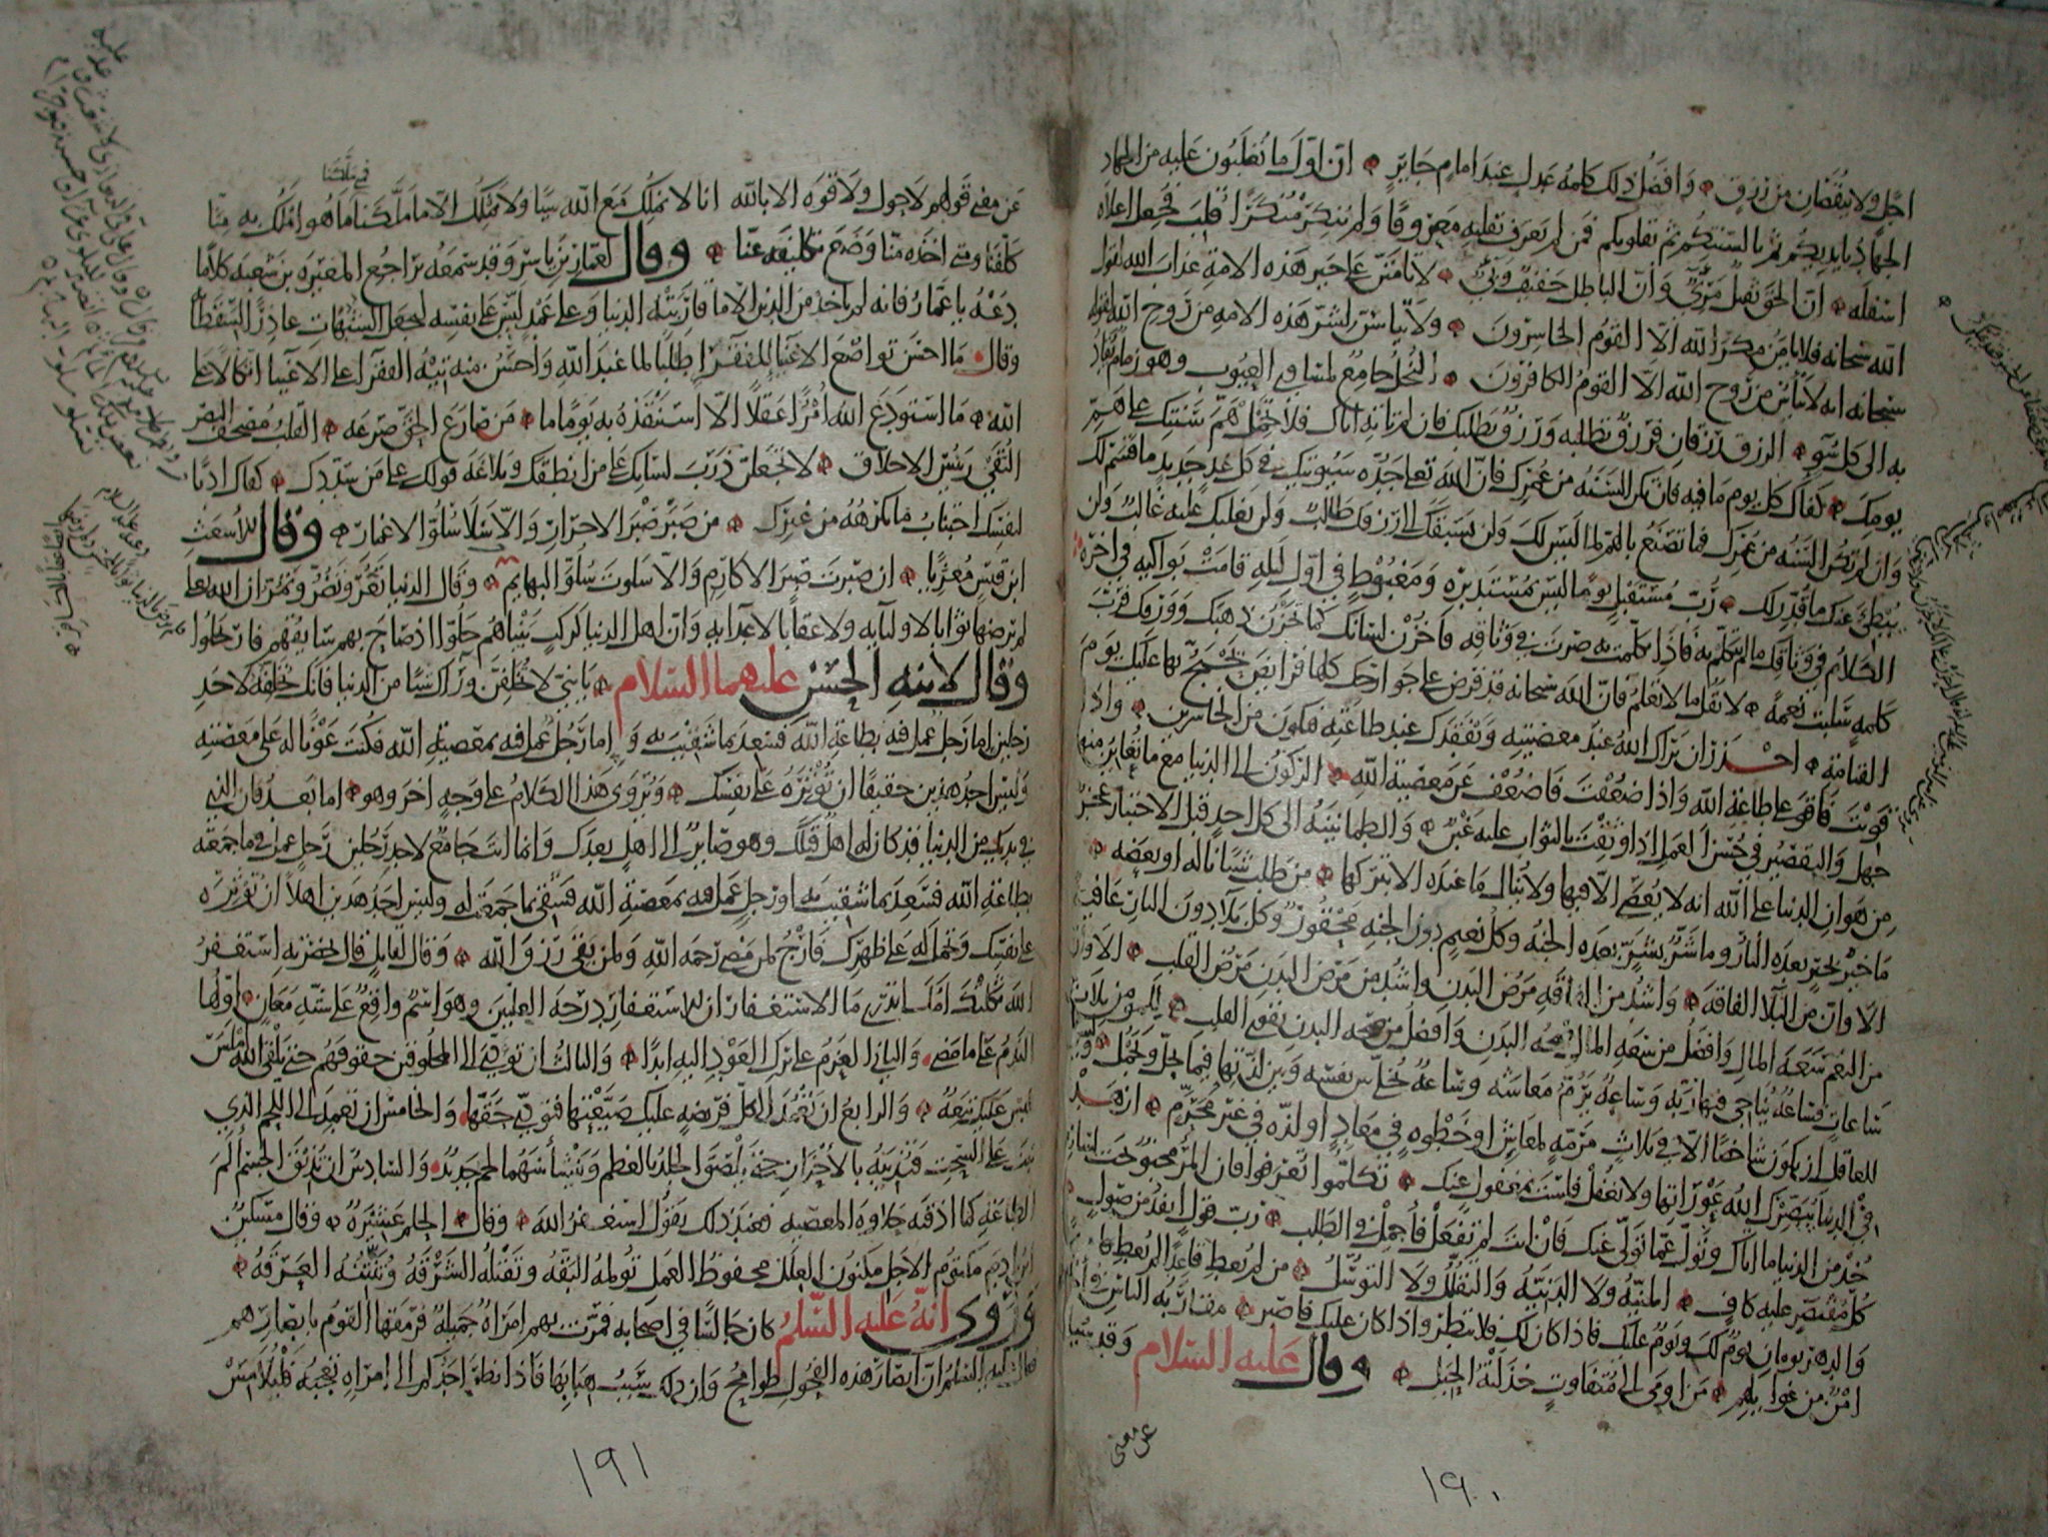 اجل ولا ينقصان من رزق وافضل ذلك كلمه عدل عند امام جاير ان اول ما تغلبون عليه من الجهاد
الجهاد بايديكم ثم بالسنتكم ثم بقلوبكم فمن لم يعرف بقلبه معروفا ولم ينكر منكرا قلب فجعل اعلاه
اسفله ان الحق ثقيل مرئ وان الباطل خفيف وبئ لا تامنن على خير هذه الامة عذاب الله لقول
الله سبحانه فلا يامن مكر الله الا القوم الخاسرون ولا تياسن لشر هذه الامه من روح الله لقوله
سبحانه انه لا يائس من روح الله الا القوم الكافرون البخل جامع لمساوى العيوب وهو زمام يقاد
به الى كل سوء الرزق رزقان فرزق تطلبه ورزق يطلبك فان لم تاته اتاك فلا تحمل هم سنتك على هم
يومك كفاك كل يوم ما فيه فان تكن السنه من عمرك فان الله تعا جده سيوتيك في كل غد جديد ما قسم لك
وان لم تكن السنه من عمرك فما تصنع بالهم لما ليس لك ولن يسبقك الى رزقك طالب ولن يغلبك عليه غالب ولن
يبطئ عنك ما قدر لك رب مستقبل يوما ليس بمستدبره ومغبوط في اول ليله قامت بواكيه في اخره
الكلام في وثاقك ما لم تتكلم به فاذا تكلمت به صرت في وثاقه فاخزن لسانك كما تخزن ذهبك وورقك فرب
كلمه سلبت نعمة لا تقل ما لا تعلم فان الله سبحانه قد فرض على جوارحك كلها فرايض يحتج بها عليك يوم
القيامة احذر ان يراك الله عند معصيته ويفقدك عند طاعته فتكون من الخاسرين واذا
قويت فاقو على طاعة الله واذا ضعفت فاضعف عن معصية الله الركون الى الدنيا مع ما تعاين منها
جهل والتقصير في حسن العمل اذا وثقت بالثواب عليه غبن والطمانينة الى كل احد قبل الاختبار عجز
من هوان الدنيا على الله انه لا يعصى الا فيها ولا ينال ما عنده الا بتركها من طلب شيئا ناله او بعضه
ما خير بخير بعده النار وما شر بشر بعده الجنه وكل نعيم دون الجنه محقور وكل بلاء دون النار عافية
الا وان من البلاء الفاقه واشد من الفاقه مرض البدن واشد من مرض البدن مرض القلب الا وان
من النعم سعه المال وافضل من سعه المال صحه البدن وافضل من صحه البدن تقوى القلب للمومن ثلاث
ساعات فساعه يناجى فيها ربه وساعه يرم معاشه وساعه يخلى بين نفسه وبين لذتها فيما يحل ويجمل وليس
للعاقل ان يكون شاخصا الا في ثلاث مرمه لمعاش او خطوه في معاد او لذه في غير محرم ازهد
في الدنيا يبصرك الله عوراتها ولا تغفل فلست بمغفول عنك تكلموا تعرفوا فان المرء مخبو تحت لسانه
خذ من الدنيا ما اتاك وتول عما تولى عنك فان انت لم تفعل فاجمل في الطلب رب قول انفذ من صول
كل مقتصر عليه كاف المنيه ولا الدنيه والتقلل ولا التوسل من لم يعط قاعدا لم يعط قايما
والدهر يومان يوم لك ويوم عليك فاذا كان لك فلا تبطر واذا كان عليك فاصبر مقاربه الناس في اخلاقهم
امن من غوايلهم من اومى الى متفاوت خذلته الحيل وقال عليه السلام وقد سئل
عن معنى
١٩٠
في ملكنا
عن معنى قولهم لا حول ولا قوه الا بالله انا لا نملك مع الله شيا ولا نملك الا ما ملكنا فما هو املك به منا
كلفنا ومتى اخذه منا وضع تكليفه عنا وقال لعمار بن ياسر وقد سمعه يراجع المغيره بن شعبه كلاما
دعه يا عمار فانه لم ياخذ من الدين الا ما قاربته الدنيا وعلى عمد لبس على نفسه ليجعل الشبهات عاذرا لسقطاته
وقال ما احسن تواضع الاغنيا للفقرا طلبا لما عند الله واحسن منه تيه الفقرا على الاغنيا اتكالا على
الله ما استودع الله امرءا عقلا الا استنقذه به يوما ما من صارع الحق صرعه القلب مصحف البصر
التقى رئيس الاخلاق لا تجعلن ذرب لسانك على من انطقك وبلاغه قولك على من سددك كفاك ادبا
لنفسك اجتناب ما تكرهه من غيرك من صبر صبر الاحرار والا سلا سلو الاغمار وقال للاشعث
ابن قيس معزيا ان صبرت صبر الاكارم والا سلوت سلو البهايم وقال الدنيا تغر وتضر وتمر ان الله تعا
لم يرضها ثوابا لاوليايه ولا عقابا لاعدايه وان اهل الدنيا كركب بيناهم حلوا اذ صاح بهم سايقهم فارتحلوا
وقال لابنه الحسن عليهما السلام يا بني لا تخلفن وراك شيا من الدنيا فانك تخلفه لاحد
رجلين اما رجل عمل فيه بطاعة الله فسعد بما شقيت به و اما رجل عمل فيه بمعصية الله فكنت عونا له على معصيته
وليس احد هذين حقيقا ان توثره على نفسك ويروى هذا الكلام على وجه اخر وهو اما بعد فان الذي
في يديك من الدنيا قد كان له اهل قبلك وهو صاير الى اهل بعدك وانما انت جامع لاحد رجلين رجل عمل فيما جمعته
بطاعة الله فسعد بما شقيت به او رجل عمل فيه بمعصية الله فشقى بما جمعت له وليس احد هذين اهلا ان توثره
على نفسك وتحمل له على ظهرك فارج لمن مضى رحمه الله ولمن بقى رزق الله وقال لقايل قال بحضرته استغفر
الله ثكلتك امك اتدرى ما الاستغفار ان الاستغفار درجه العليين وهو اسم واقع على سته معان اولها
الندم على ما مضى والثاني العزم على ترك العود اليه ابدا والثالث ان تودى الى المخلوقين حقوقهم حتى تلقى الله املس
ليس عليك تبعه والرابع ان تعمد الى كل فريضه عليك ضيعتها فتودى حقها والخامس ان تعمد الى اللحم الذي
نبت على السحت فتذيبه بالاحزان حتى يلصق الجلد بالعظم وينشأ بينهما لحم جديد والسادس ان تذيق الجسم الم
الطاعه كما اذقته حلاوه المعصيه فعند ذلك يقول استغفر الله وقال الحلم عشيره وقال مسكين
ابن ادم مكتوم الاجل مكنون العلل محفوظ العمل تولمه البقه وتقتله الشرقه وتنتنه العرقه
وروى انه عليه السلم كان جالسا في اصحابه فمرت بهم امراه جميله فرمقها القوم بابصارهم
فقال عليه السلم ان ابصار هذه الفحول طوامح وان ذلك سبب هبابها فاذا نظر احدكم الى امراه تعجبه فليلامس
١٩١